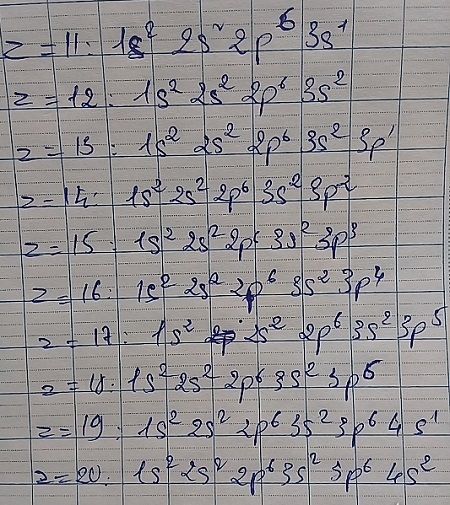 z = 11: 1s² 2s² 2p⁶ 3s¹
z = 12: 1s² 2s² 2p⁶ 3s²
z = 13: 1s² 2s² 2p⁶ 3s² 3p¹
z = 14: 1s² 2s² 2p⁶ 3s² 3p²
z = 15: 1s² 2s² 2p⁶ 3s² 3p³
z = 16: 1s² 2s² 2p⁶ 3s² 3p⁴
z = 17: 1s² 2s² 2p⁶ 3s² 3p⁵
z = 18: 1s² 2s² 2p⁶ 3s² 3p⁶
z = 19: 1s² 2s² 2p⁶ 3s² 3p⁶ 4s¹
z = 20: 1s² 2s² 2p⁶ 3s² 3p⁶ 4s²